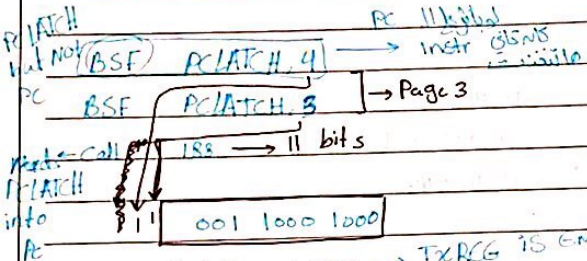 PCLATCH PC
but Not BSF PCLATCH, 4 → instr
PC BSF PCLATCH, 3 → Page 3
Next ← Call 188 → 11 bits
PCLATCH
into 1 1 001 1000 1000
PC
→ TXREG is